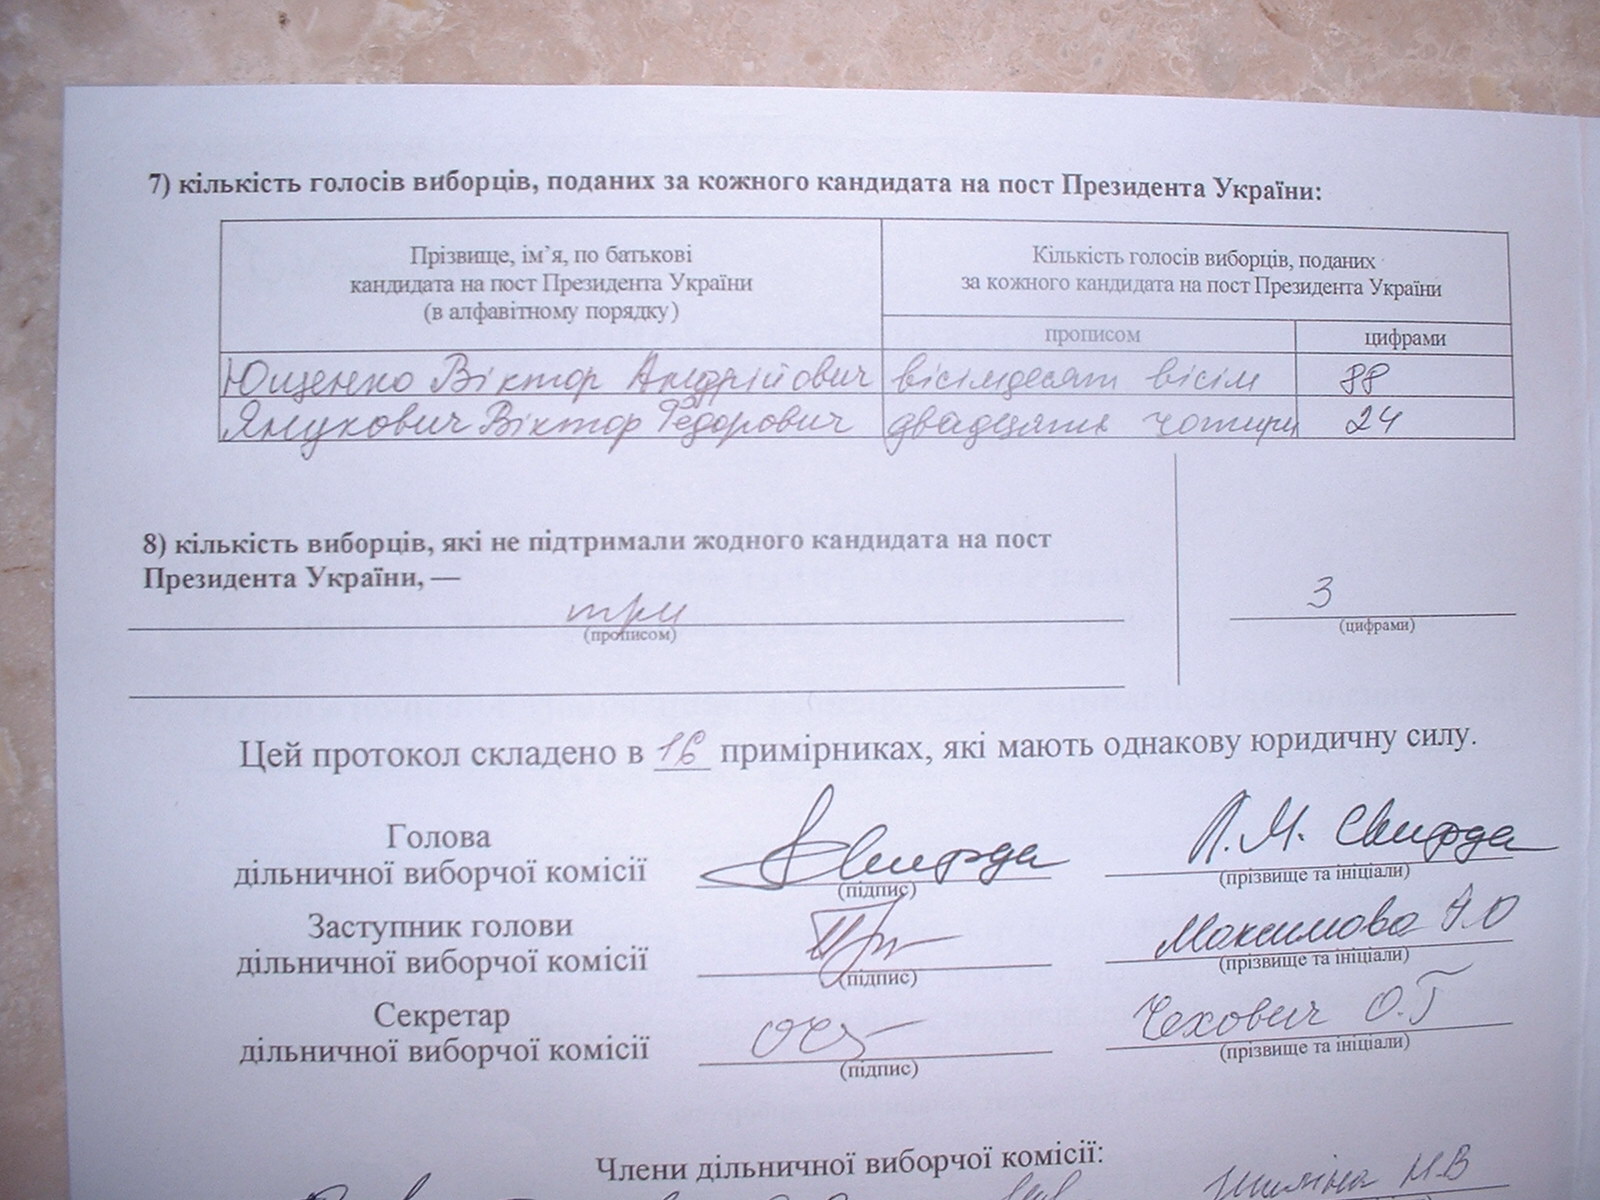 7) кількість голосів виборців, поданих за кожного кандидата на пост Президента України:
Прізвище, ім’я, по батькові
кандидата на пост Президента України
(в алфавітному порядку)
Кількість голосів виборців, поданих
за кожного кандидата на пост Президента України
прописом цифрами
Ющенко Віктор Андрійович вісімдесят вісім 88
Янукович Віктор Федорович двадцять чотири 24
8) кількість виборців, які не підтримали жодного кандидата на пост
Президента України, —
три 3
(прописом) (цифрами)
Цей протокол складено в 16 примірниках, які мають однакову юридичну силу.
Голова
дільничної виборчої комісії
(підпис)
Л.М. Свирда
(прізвище та ініціали)
Заступник голови
дільничної виборчої комісії
(підпис)
Максимова
(прізвище та ініціали)
Секретар
дільничної виборчої комісії
(підпис)
Чехович О.Г
(прізвище та ініціали)
Члени дільничної виборчої комісії: